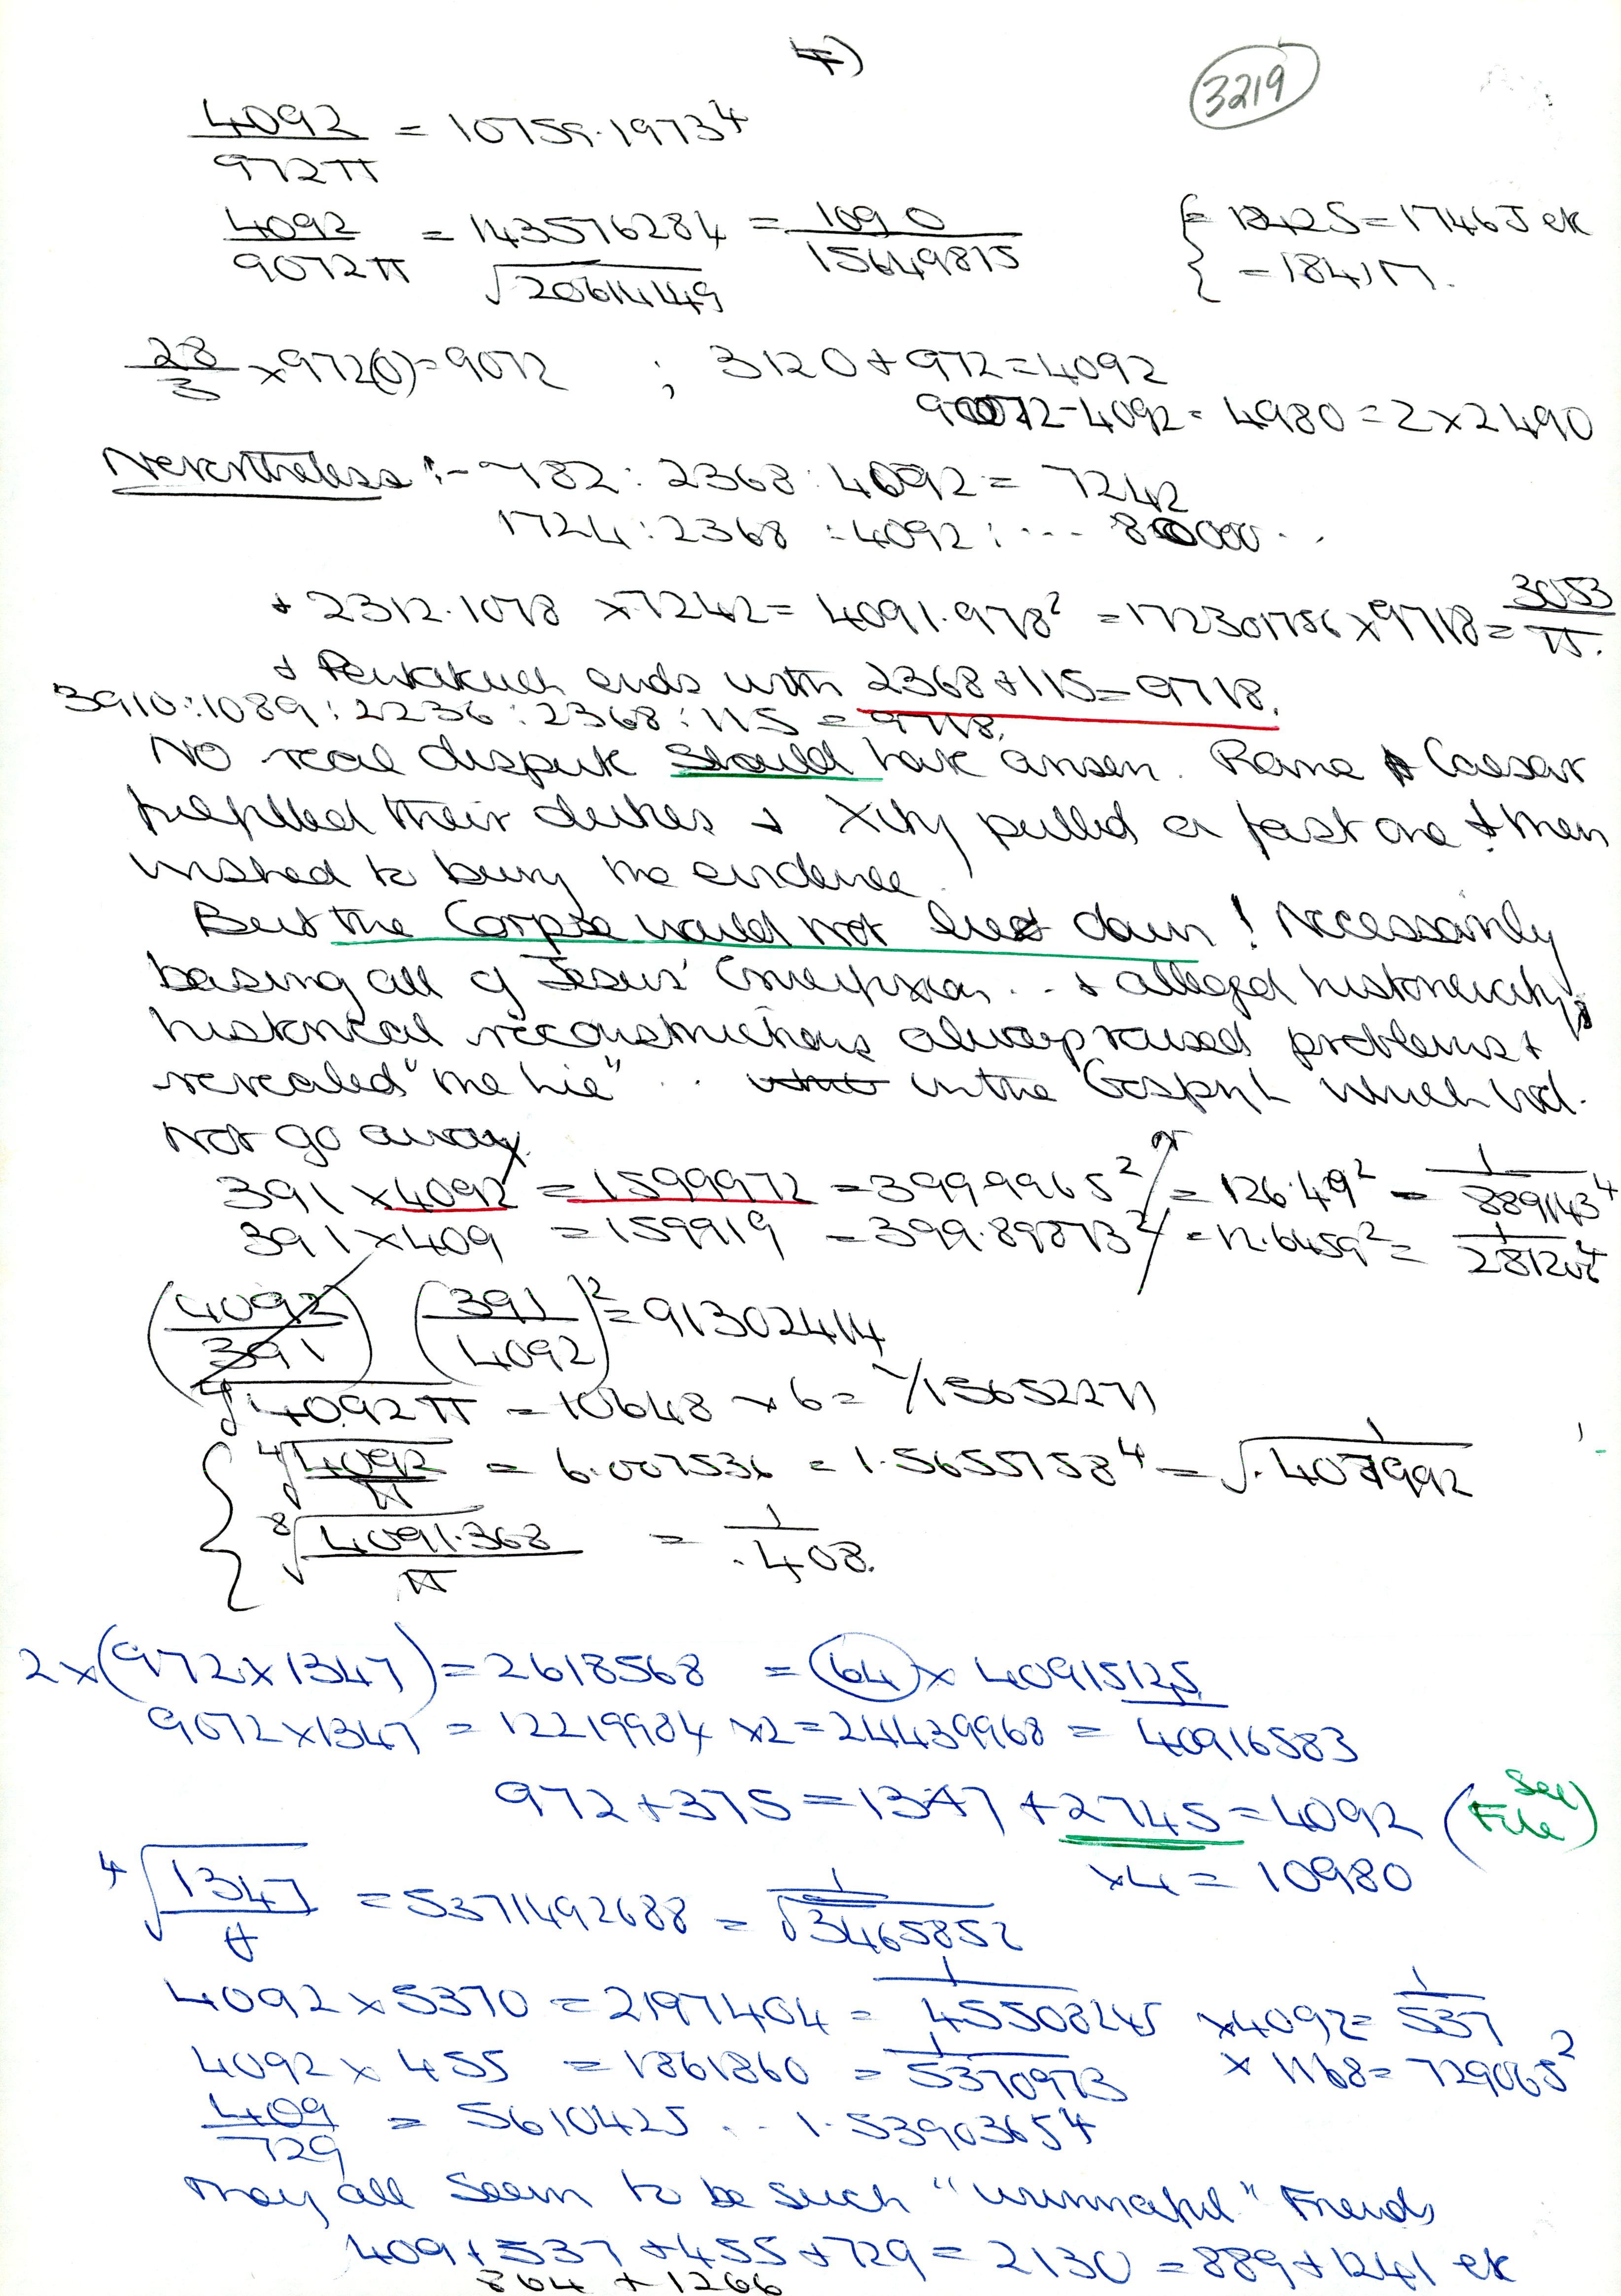 4)
3219
4092/972π = 10759.1973⁴
4092/9072π = 143576284/√20614149 = 1090/15649815 { = 12425 = 1746 J ek
{ = 184,17.
28/3 × 972(0) = 9072 ; 3120 + 972 = 4092
9072 - 4092 = 4980 = 2 × 2490
Nevertheless :- 782 : 2368 : 4092 = 7242
1724 : 2368 : 4092 : ... 80000 ..
+ 2312.1078 × 7242 = 4091.978² = 172301786 × 9718 = 3053/π.
+ Pentateuch ends with 2368 + 115 = 9718.
3910 : 1089 : 2236 : 2368 : 115 = 9718.
No real dispute should have arisen. Rome & Caesar
fulfilled their duties & Xity pulled a fast one & then
wished to bury the evidence.
But the Corpse would not lie down ! Necessarily
basing all of Jesus' ... & alleged historicity,
historical reconstructions always raised problems &
revealed "the Lie" .. in the Gospel which wd.
not go away.
391 × 4092 = 1599972 = 3999965² or = 126.49² = 1/889143⁴
391 × 409 = 159919 = 399.89873² = 12.6459² = 1/28120⁴
(4092/391) (391/4092)² = 91302414
⁴√4092π = 10648 × 6 = 1/15652271
{ ⁴√4092/π = 6.007536 = 1.5655758⁴ = √1/.407992
{ ⁸√4091.368/π = 1/.408.
2 × (972 × 1347) = 2618568 = 64 × 40915125
9072 × 1347 = 12219984 × 2 = 24439968 = 40916583
972 + 375 = 1347 + 2745 = 4092 (See File)
× 4 = 10980
⁴√1347/π = 5371492688 = 1/√3465852
4092 × 5370 = 2197404 = 1/45508245 × 4092 = 1/537
4092 × 455 = 1861860 = 1/5370973 × 1168 = 729065²
409/729 = 5610425 .. 1.5390365⁴
They all seem to be such "unmiraful" Friends
409 + 537 + 455 + 729 = 2130 = 889 + 1241 ek
864 + 1266